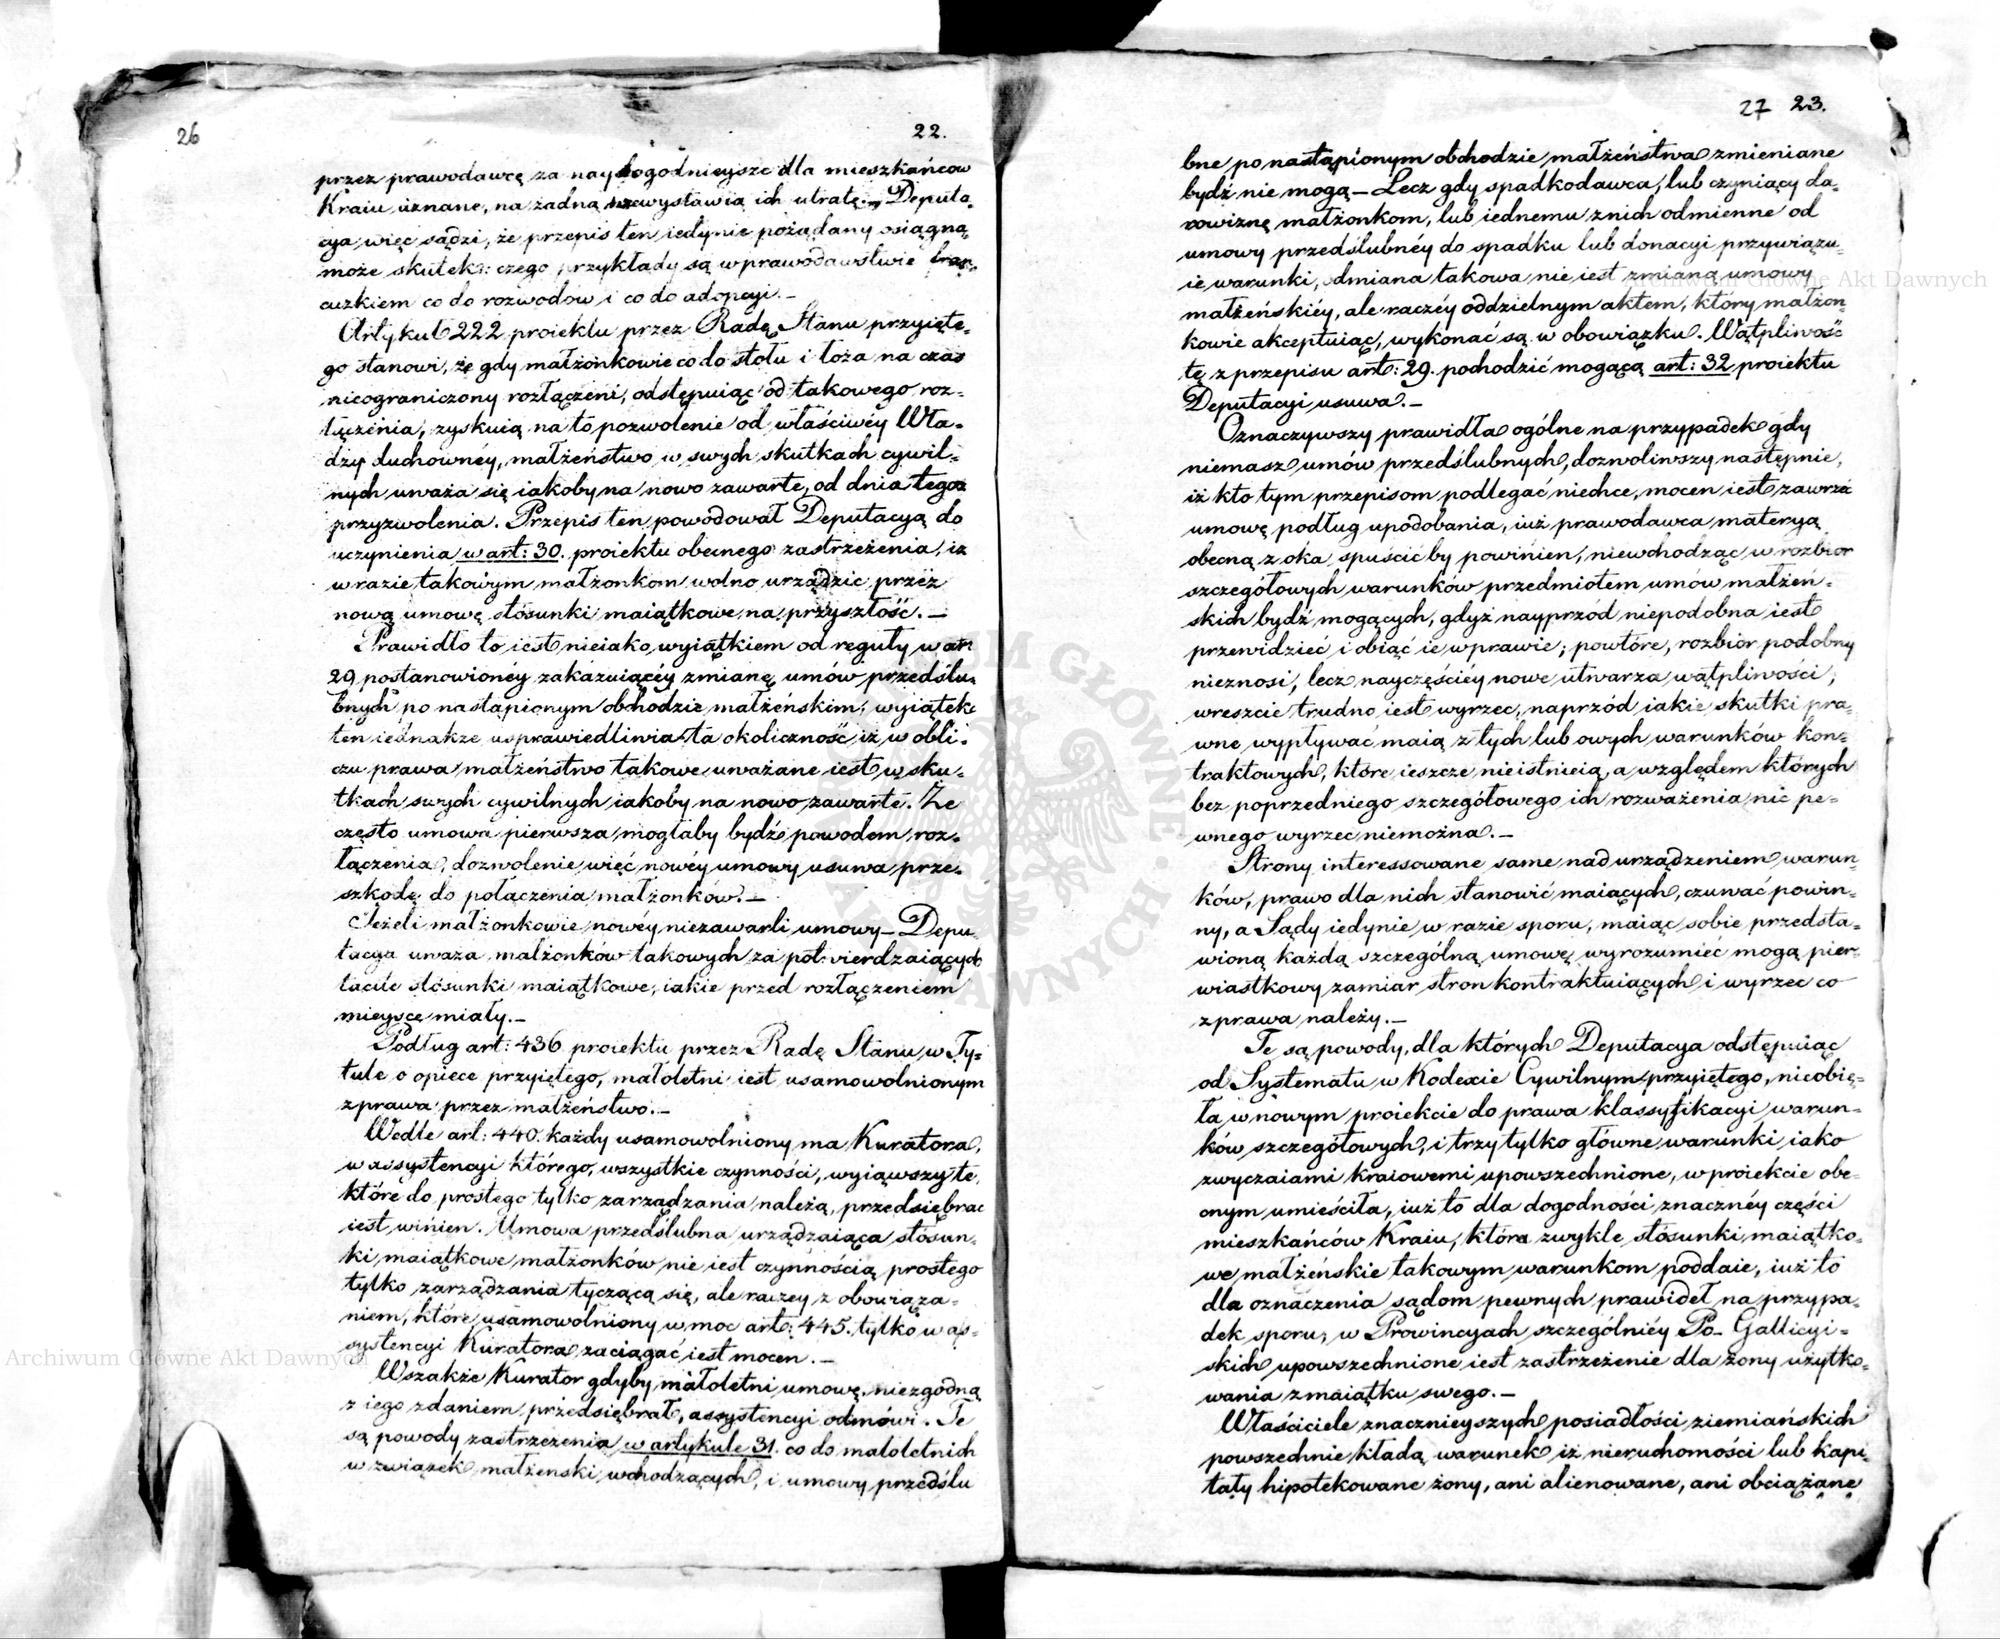 26
22.
przez prawodawcę za naydogodnieysze dla mieszkańcow
Kraiu uznane, na żadną niewystawia ich utratę. – Deputa-
cya więc sądzi, że przepis ten iedynie pożądany osiągną
może skutek: czego przykłady są w prawodawstwie fran-
cuzkiem co do rozwodów i co do adopcyi. –
Artykuł 222 proiektu przez Radę Stanu przyięte-
go stanowi, że gdy małżonkowie co do stołu i łoża na czas
nieograniczony rozłączeni, odstępuiąc od takowego roz-
łączenia, zyskuią na to pozwolenie od właściwéy Wła-
dzy duchownéy, małżeństwo w swych skutkach cywil-
nych uważa się iakoby na nowo zawarte, od dnia tegoż
przyzwolenia. Przepis ten powodował Deputacyą do
uczynienia w art: 30. proiektu obecnego zastrzeżenia, iż
w razie takowym małżonkom wolno urządzić przez
nową umowę stósunki maiątkowe na przyszłość. –
Prawidło to iest nieiako wyiątkiem od reguły w art
29 postanowionéy zakazuiącéy zmianę umów przedślu-
bnych po nastąpionym obchodzie małżeńskim; wyiątek
ten iednakże usprawiedliwia ta okoliczność iż w obli-
czu prawa małżeństwo takowe uważane iest w sku-
tkach swych cywilnych iakoby na nowo zawarte. Że
często umowa pierwsza mogłaby bydź powodem roz-
łączenia, dozwolenie więć nowéy umowy usuwa prze-
szkodę do połączenia małżonków. –
Jeżeli małżonkowie nowéy niezawarli umowy – Depu-
tacya uważa małżonków takowych za potwierdzaiących
tacite stósunki maiątkowe, iakie przed rozłączeniem
mieysce miały. –
Podług art: 436 proiektu przez Radę Stanu w Ty-
tule o opiece przyiętego, małoletni iest usamowolnionym
z prawa przez małżeństwo. –
Wedle art: 440. każdy usamowolniony ma Kuratora,
w assystencyi którego, wszystkie czynności, wyiąwszy te,
które do prostego tylko zarządzania należą, przedsiębrac
iest winien. Umowa przedślubna urządzaiąca stósun-
ki maiątkowe małżonków nie iest czynnością prostego
tylko zarządzania tyczącą się, ale raczey z obowiąza-
niem, które usamowolniony w moc art: 445. tylko w as-
systencyi Kuratora zaciągać iest mocen. –
Wszakże Kurator gdyby małoletni umowę, niezgodną
z iego zdaniem przedsiębrał, assystencyi odmówi. Te
są powody zastrzeżenia w artykule 31. co do małoletnich
w związek małżenski wchodzących, i umowy przedślu
27 23.
bne po nastąpionym obchodzie małżeństwa zmieniane
bydź nie mogą – Lecz gdy spadkodawca, lub czyniący da-
rowiznę małżonkom, lub iednemu z nich odmienne od
umowy przedślubnéy do spadku lub donacyi przywiązu-
ie warunki, odmiana takowa nie iest zmianą umowy
małżeńskiéy, ale raczéy oddzielnym aktem, który małżon-
kowie akceptuiąc, wykonać są w obowiązku. Wątpliwość
tę z przepisu art: 29. pochodzić mogącą art: 32 proiektu
Deputacyi usuwa. –
Oznaczywszy prawidła ogólne na przypadek gdy
niemasz umów przedślubnych, dozwoliwszy następnie,
iż kto tym przepisom podlegać niechce, mocen iest zawrzéć
umowę podług upodobania, iuż prawodawca materyą
obecną z oka spuścić by powinien, niewchodząc w rozbior
szczegółowych warunków przedmiotem umów małżeń-
skich bydź mogących, gdyż nayprzod niepodobna iest
przewidzieć i obiąć ie w prawie; powtóre, rozbior podobny
nieznosi, lecz nayczęściéy nowe utwarza wątpliwości;
wreszcie trudno iest wyrzec, naprzód iakie skutki pra-
wne wypływać maią z tych lub owych warunków kon-
traktowych, które ieszcze nieistnieią, a względem których
bez poprzedniego szczegółowego ich rozważenia nic pe-
wnego wyrzec niemożna. –
Strony interessowane same nad urządzeniem warun-
ków, prawo dla nich stanowić maiących, czuwać powin-
ny, a Sądy iedynie w razie sporu, maiąc sobie przedsta-
wioną każdą szczególną umowę, wyrozumieć mogą pier-
wiastkowy zamiar stron kontraktuiących i wyrzec co
z prawa należy. –
Te są powody, dla których Deputacya odstępuiąc
od Systematu w Kodexie Cywilnym przyiętego, nieobię-
ła w nowym proiekcie do prawa klassyfikacyi warun-
ków szczegółowych, i trzy tylko główne warunki iako
zwyczaiami kraiowemi upowszechnione, w proiekcie obe-
cnym umieściła, iuż to dla dogodności znacznéy części
mieszkańców Kraiu, która zwykle stósunki maiątko-
we małżeńskie takowym warunkom poddaie, iuż to
dla oznaczenia sądom pewnych prawideł na przypa-
dek sporu, w Prowincyach szczególniéy Po-Gallicyi-
skich upowszechnione iest zastrzeżenie dla żony użytko-
wania z maiątku swego. –
Właściciele znacznieyszych posiadłości ziemiańskich
powszechnie kładą warunek iż nieruchomości lub kapi-
tały hipotekowane żony, ani alienowane, ani obciążane
Archiwum Główne Akt Dawnych
Archiwum Główne Akt Dawnych